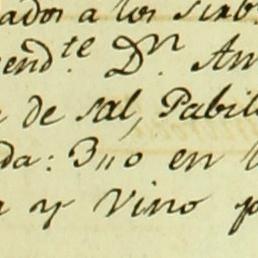 ados a los sirb
end.te D.n An
de sal, Pabil
da: 3110 en
y Vino p